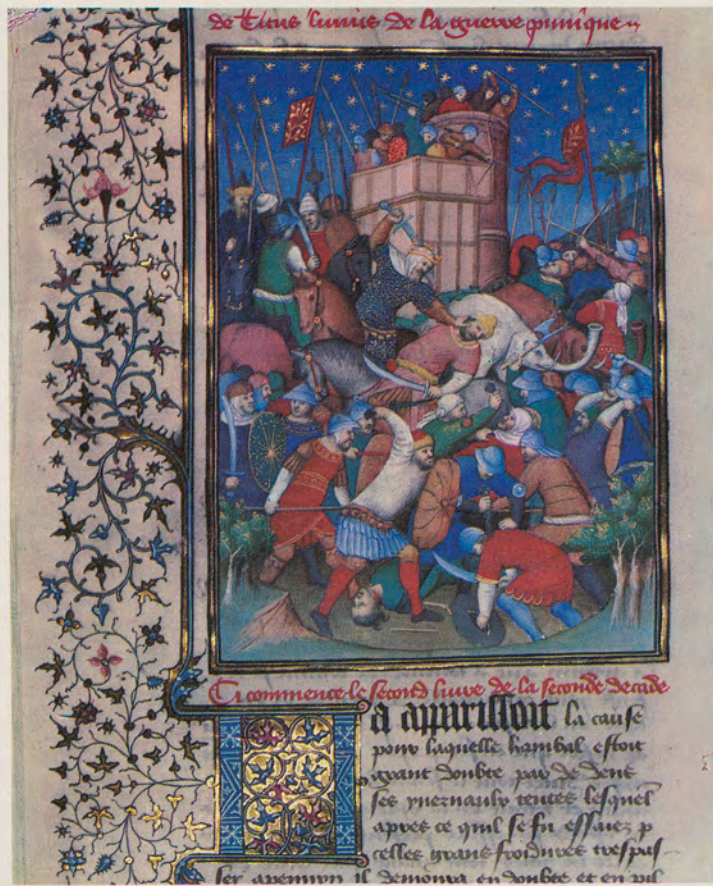 de Titus livius de la guerre punique
Ci commence le second livre de la seconde decade
Ia apparissoit la cause
pour laquelle hanibal estoit
avant doubte par de dens
ses yvernaulx tentes lesquel
apres ce quil se fu essaiez p
celles grans froidures trespas-
ser apennyn il demoura en doubte et en pil